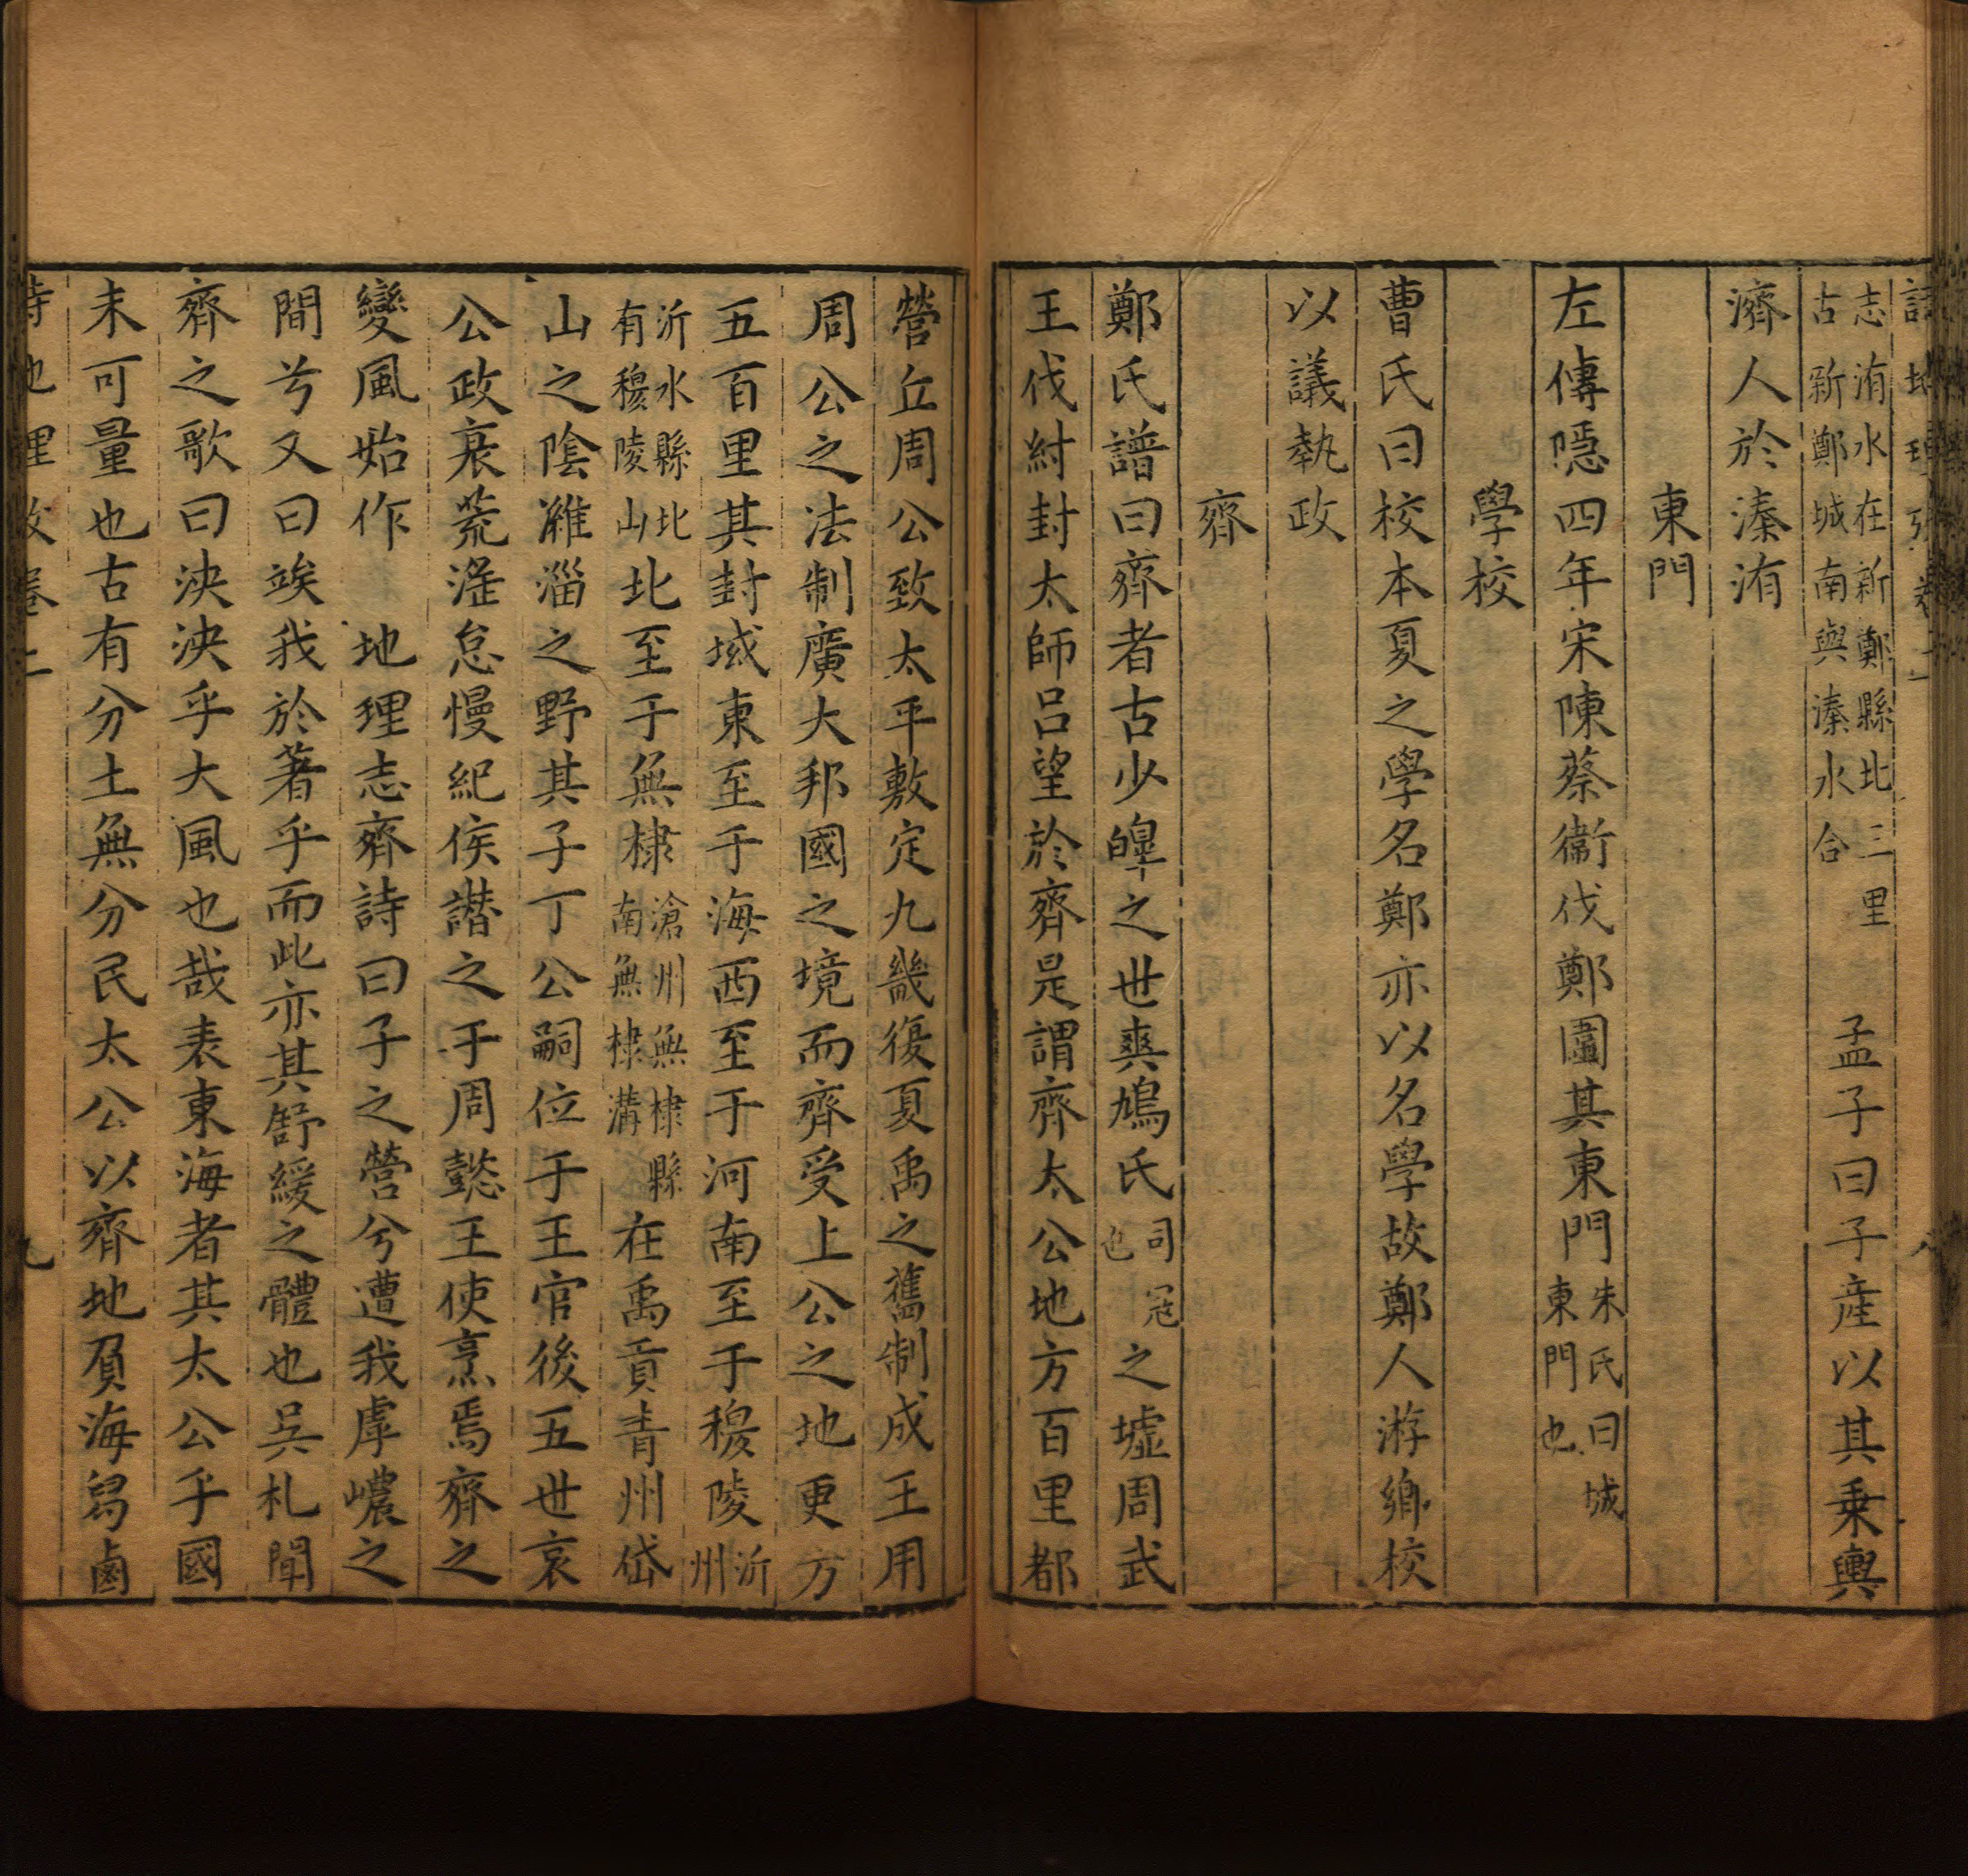 志洧水在新鄭縣北三里古新鄭城南與溱水合　孟子曰子產以其乗輿
濟人於溱洧
東門
左傳隱四年宋陳蔡衞伐鄭圍其東門朱氏曰城東門也
學校
曹氏曰校本夏之學名鄭亦以名學故鄭人游鄉校
以議執政
齊
鄭氏譜曰齊者古少皥之世爽鳩氏司冦也之墟周武
王伐紂封太師呂望於齊是謂齊太公地方百里都
營丘周公致太平敷定九畿復夏禹之舊制成王用
周公之法制廣大邦國之境而齊受上公之地更方
五百里其封域東至于海西至于河南至于穆陵沂州
沂水縣北有穆陵山北至于無棣滄州無棣縣南無棣溝在禹貢青州岱
山之陰濰淄之野其子丁公嗣位于王官後五世哀
公政衰荒淫怠慢紀侯譖之于周懿王使烹焉齊之
變風始作　地理志齊詩曰子之營兮遭我虖嶩之
間兮又曰竢我於著乎而此亦其舒緩之體也吳札聞
齊之歌曰泱泱乎大風也哉表東海者其太公乎國
未可量也古有分土無分民太公以齊地負海舄鹵
詩地理攷卷二　九